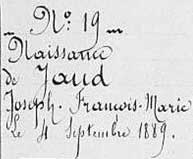 N.º 19
Naissance
de Jaud
Joseph-François-Marie
Le 4 Septembre 1889.